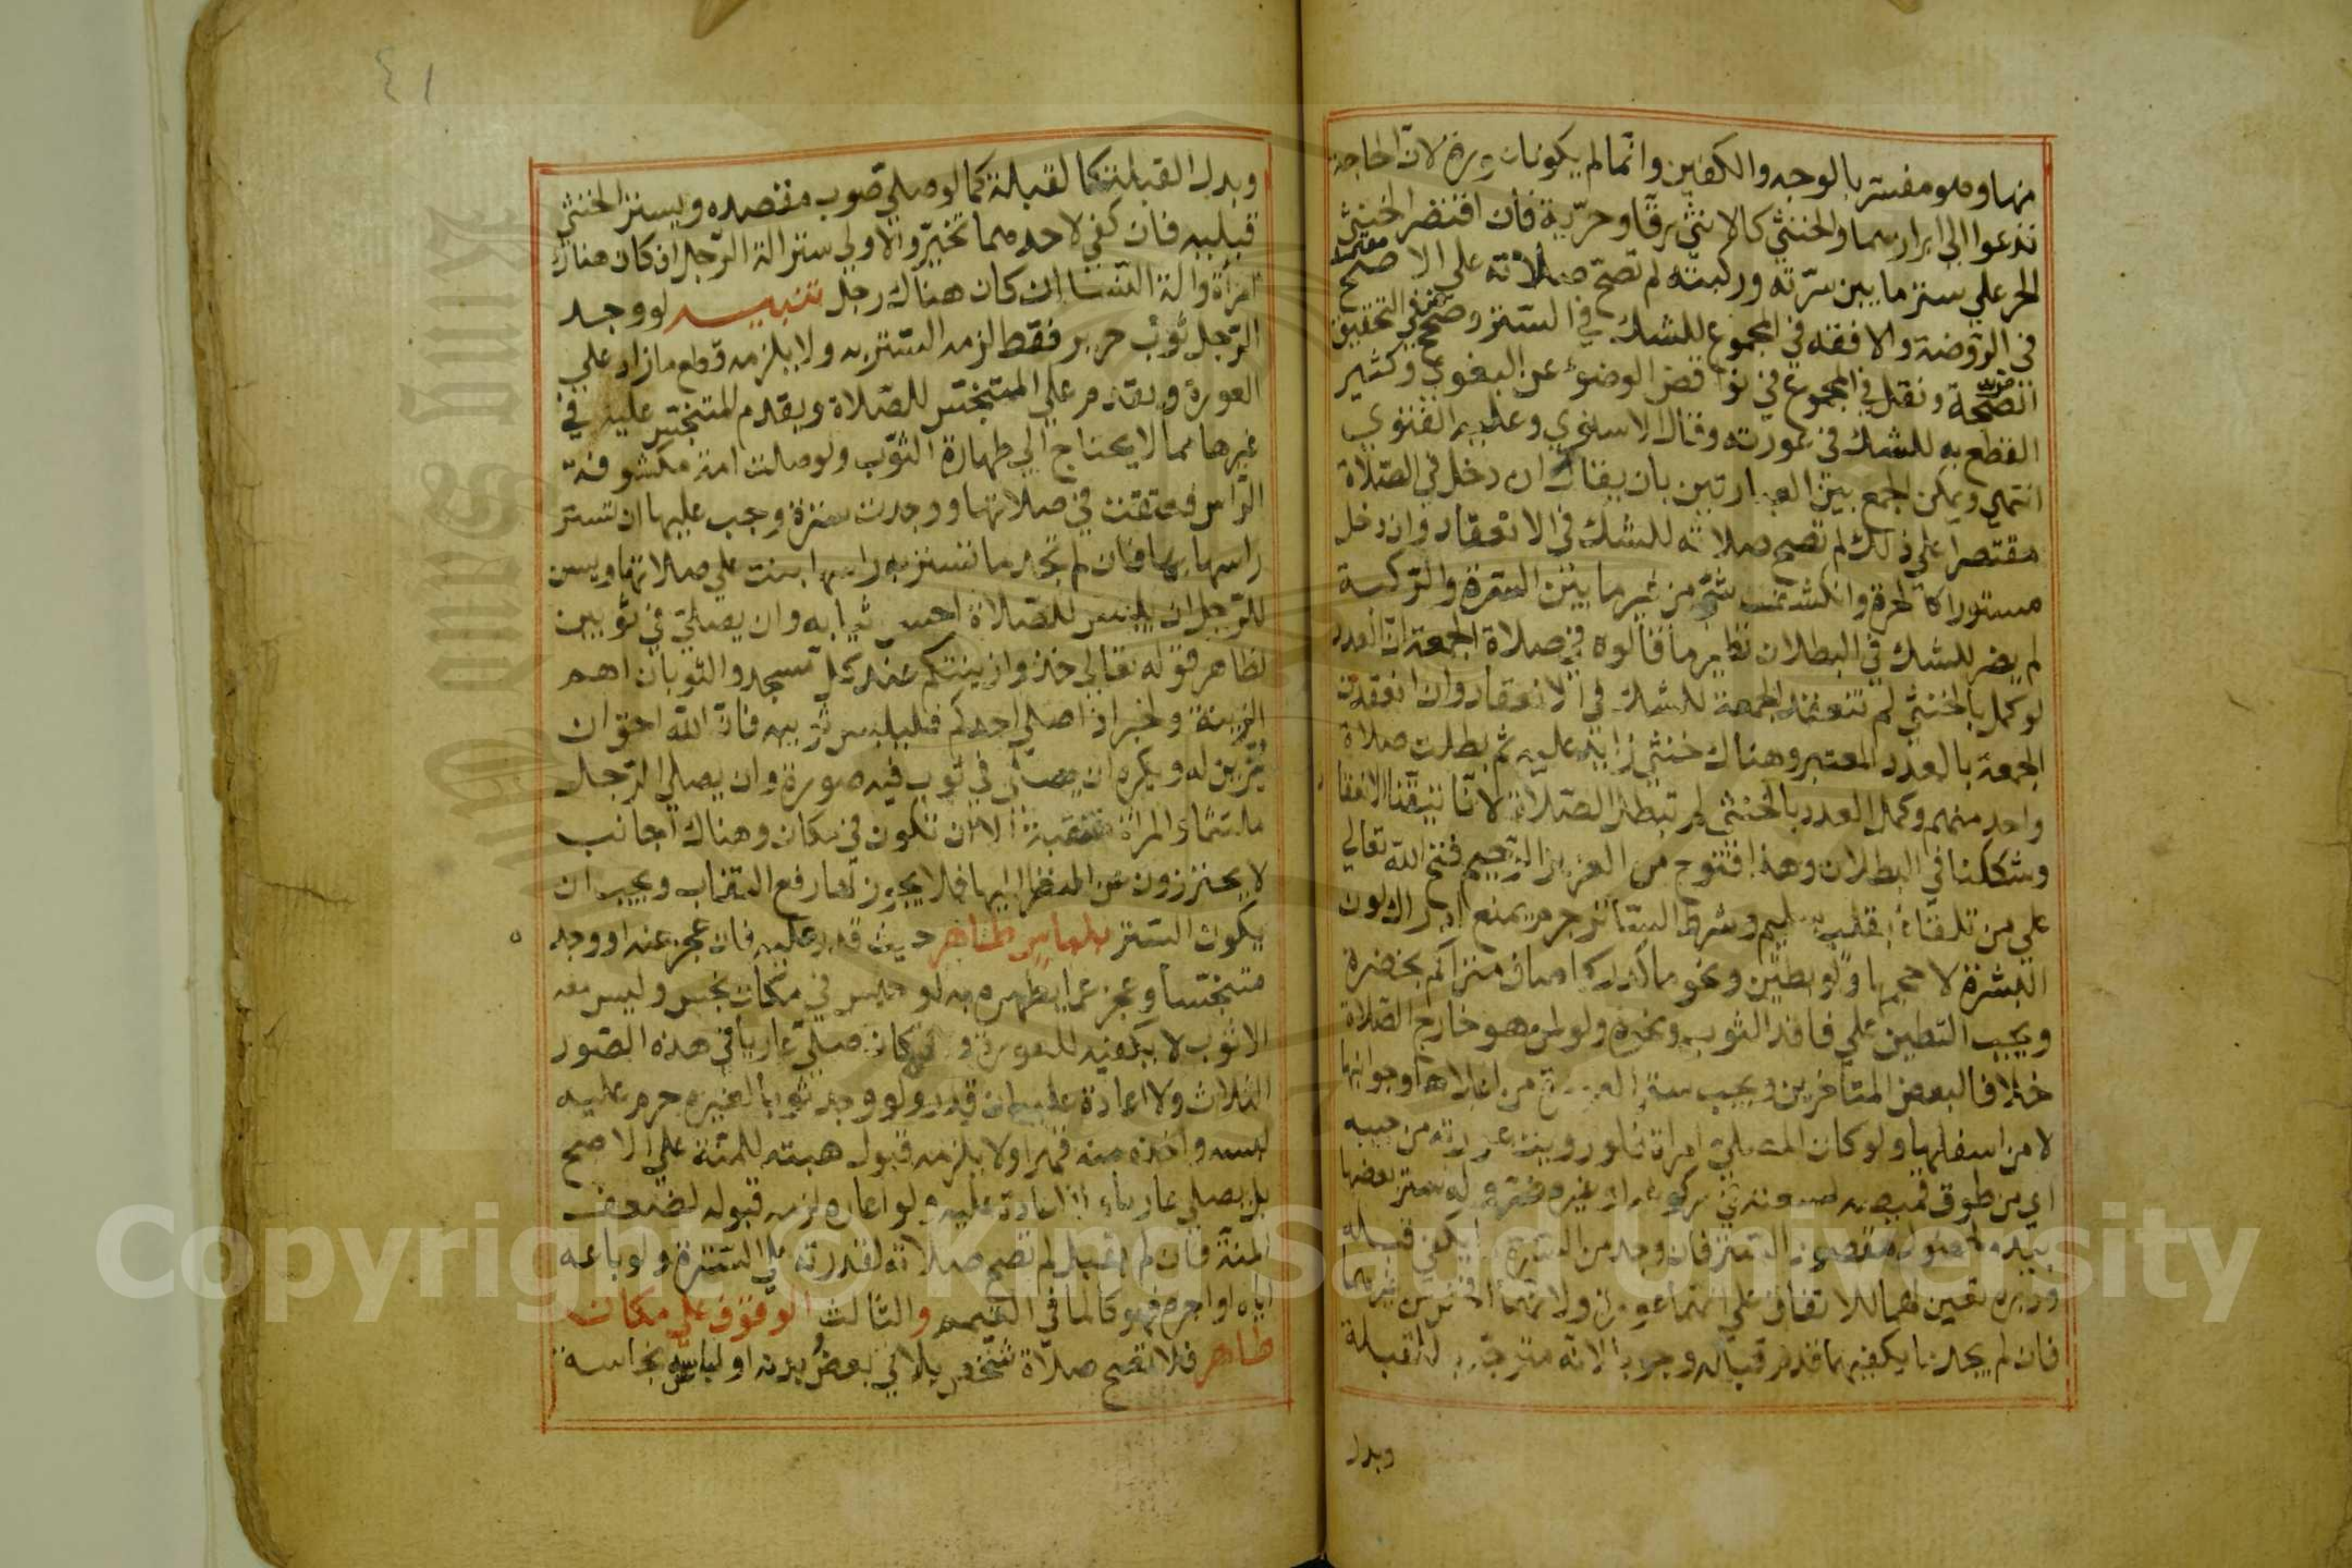 منها وهو مفسر بالوجه والكفين وانما لم يكونا عورة لان الحاجة
تدعوا الى ابرازهما والخنثي كالانثي رقا وحرية فان اقتصر الخنثي
الحر علي ستر ما بين سرته وركبته لم تصح صلاته علي الاصح معتمد
في الروضة والافقه في المجموع للشك في الستر وصحح في التحقيق
الصحة ونقل في المجموع في نواقض الوضوء عن البغوي وكثير
القطع به للشك في عورته وقال الاسنوي وعليه الفتوي
انتهي ويمكن الجمع بين العبارتين بان يقال ان دخل في الصلاة
مقتصرا علي ذلك لم تصح صلاته للشك في الانعقاد وان دخل
مستورا كالحرة وانكشف شئ من غير ما بين السرة والركبة
لم يضر للشك في البطلان نظير ما قالوه في صلاة الجمعة ان العدد
لو كمل بالخنثي لم تنعقد الجمعة للشك في الانعقاد وان انعقدت
الجمعة بالعدد المعتبر وهناك خنثي زايد عليه ثم بطلت صلاة
واحد منهم وكمل العدد بالخنثي لم تبطل الصلاة لانا تيقنا الانعقاد
وشككنا في البطلان وهذا فتوح من العزيز الرحيم فتح الله تعالي
علي من تلقاه بقلب سليم وشرط الساتر جرم يمنع ادراك لون
البشرة لا حجمها ولو بطين ونحو ماء كدر كماء صاف متراكم بخضرة
ويجب التطين علي فاقد الثوب ونحوه ولو لمن هو خارج الصلاة
خلافا لبعض المتاخرين ويجب ستر العورة من اعلاها وجوانبها
لا من اسفلها ولو كان المصلي امراة فلو رويت عورته من جيبه
اي من طوق قميصه لسعته في ركوع او غيره ضر وله ستر بعضها
بيده لحصول مقصود الستر فان وجد من السترة ما يكفي قبله
ودبره تعين لهما للاتفاق علي انهما عورة ولانهما افحش من غيرهما
فان لم يجد ما يكفيهما قدم قبله وجوبا لانه متوجه به للقبلة
وبدل
٤١
وبدل القبلة كالقبلة كما لو صلي صوب مقصده ويستر الخنثي
قبليه فان كفي لاحدهما تخير والاولي ستر الة الرجل ان كان هناك
امراة والة النسا ان كان هناك رجل تنبيه لو وجد
الرجل ثوب حرير فقط لزمه الستر به ولا يلزمه قطع ما زاد علي
العورة ويقدم علي المتنجس للصلاة ويقدم المتنجس عليه في
غيرها مما لا يحتاج الي طهارة الثوب ولو صلت امة مكشوفة
الراس فعتقت في صلاتها ووجدت سترة وجب عليها ان تستر
راسها بها فان لم تجد ما تستر به راسها بنت علي صلاتها ويسن
للرجل ان يلبس للصلاة احسن ثيابه وان يصلي في ثوبين
لظاهر قوله تعالي خذوا زينتكم عند كل مسجد والثوبان اهم
الزينة ولخبر اذا صلي احدكم فليلبس ثوبيه فان الله احق ان
يزين له ويكره ان يصلي في ثوب فيه صورة وان يصلي الرجل
ملتثما والمراة منتقبة الا ان تكون في مكان وهناك اجانب
لا يحترزون عن النظر اليها فلا يجوز لها رفع النقاب ويجب ان
يكون الستر بلباس طاهر حيث قدر عليه فان عجز عنه او وجده
متنجسا وعجز عما يطهره به او حبس في مكان نجس وليس معه
الا ثوب لا يكفيه للعورة وللمكان صلي عاريا في هذه الصور
الثلاث ولا اعادة عليه ولو وجد ثوبا لغيره حرم عليه
لبسه واخذه منه قهرا ولا يلزمه قبول هبته للمنة علي الاصح
بل يصلي عاريا ولا اعادة عليه ولو اعاره لزمه قبوله لضعف
المنة فان لم يقبل لم تصح صلاته لقدرته علي السترة ولو باعه
اياه او اجره فهو كالماء في التيمم والثالث الوقوف علي مكان
طاهر فلا تصح صلاة شخص يلاقي بعض بدنه او لباسه نجاسة
Copyright © King Saud University
King Saud University